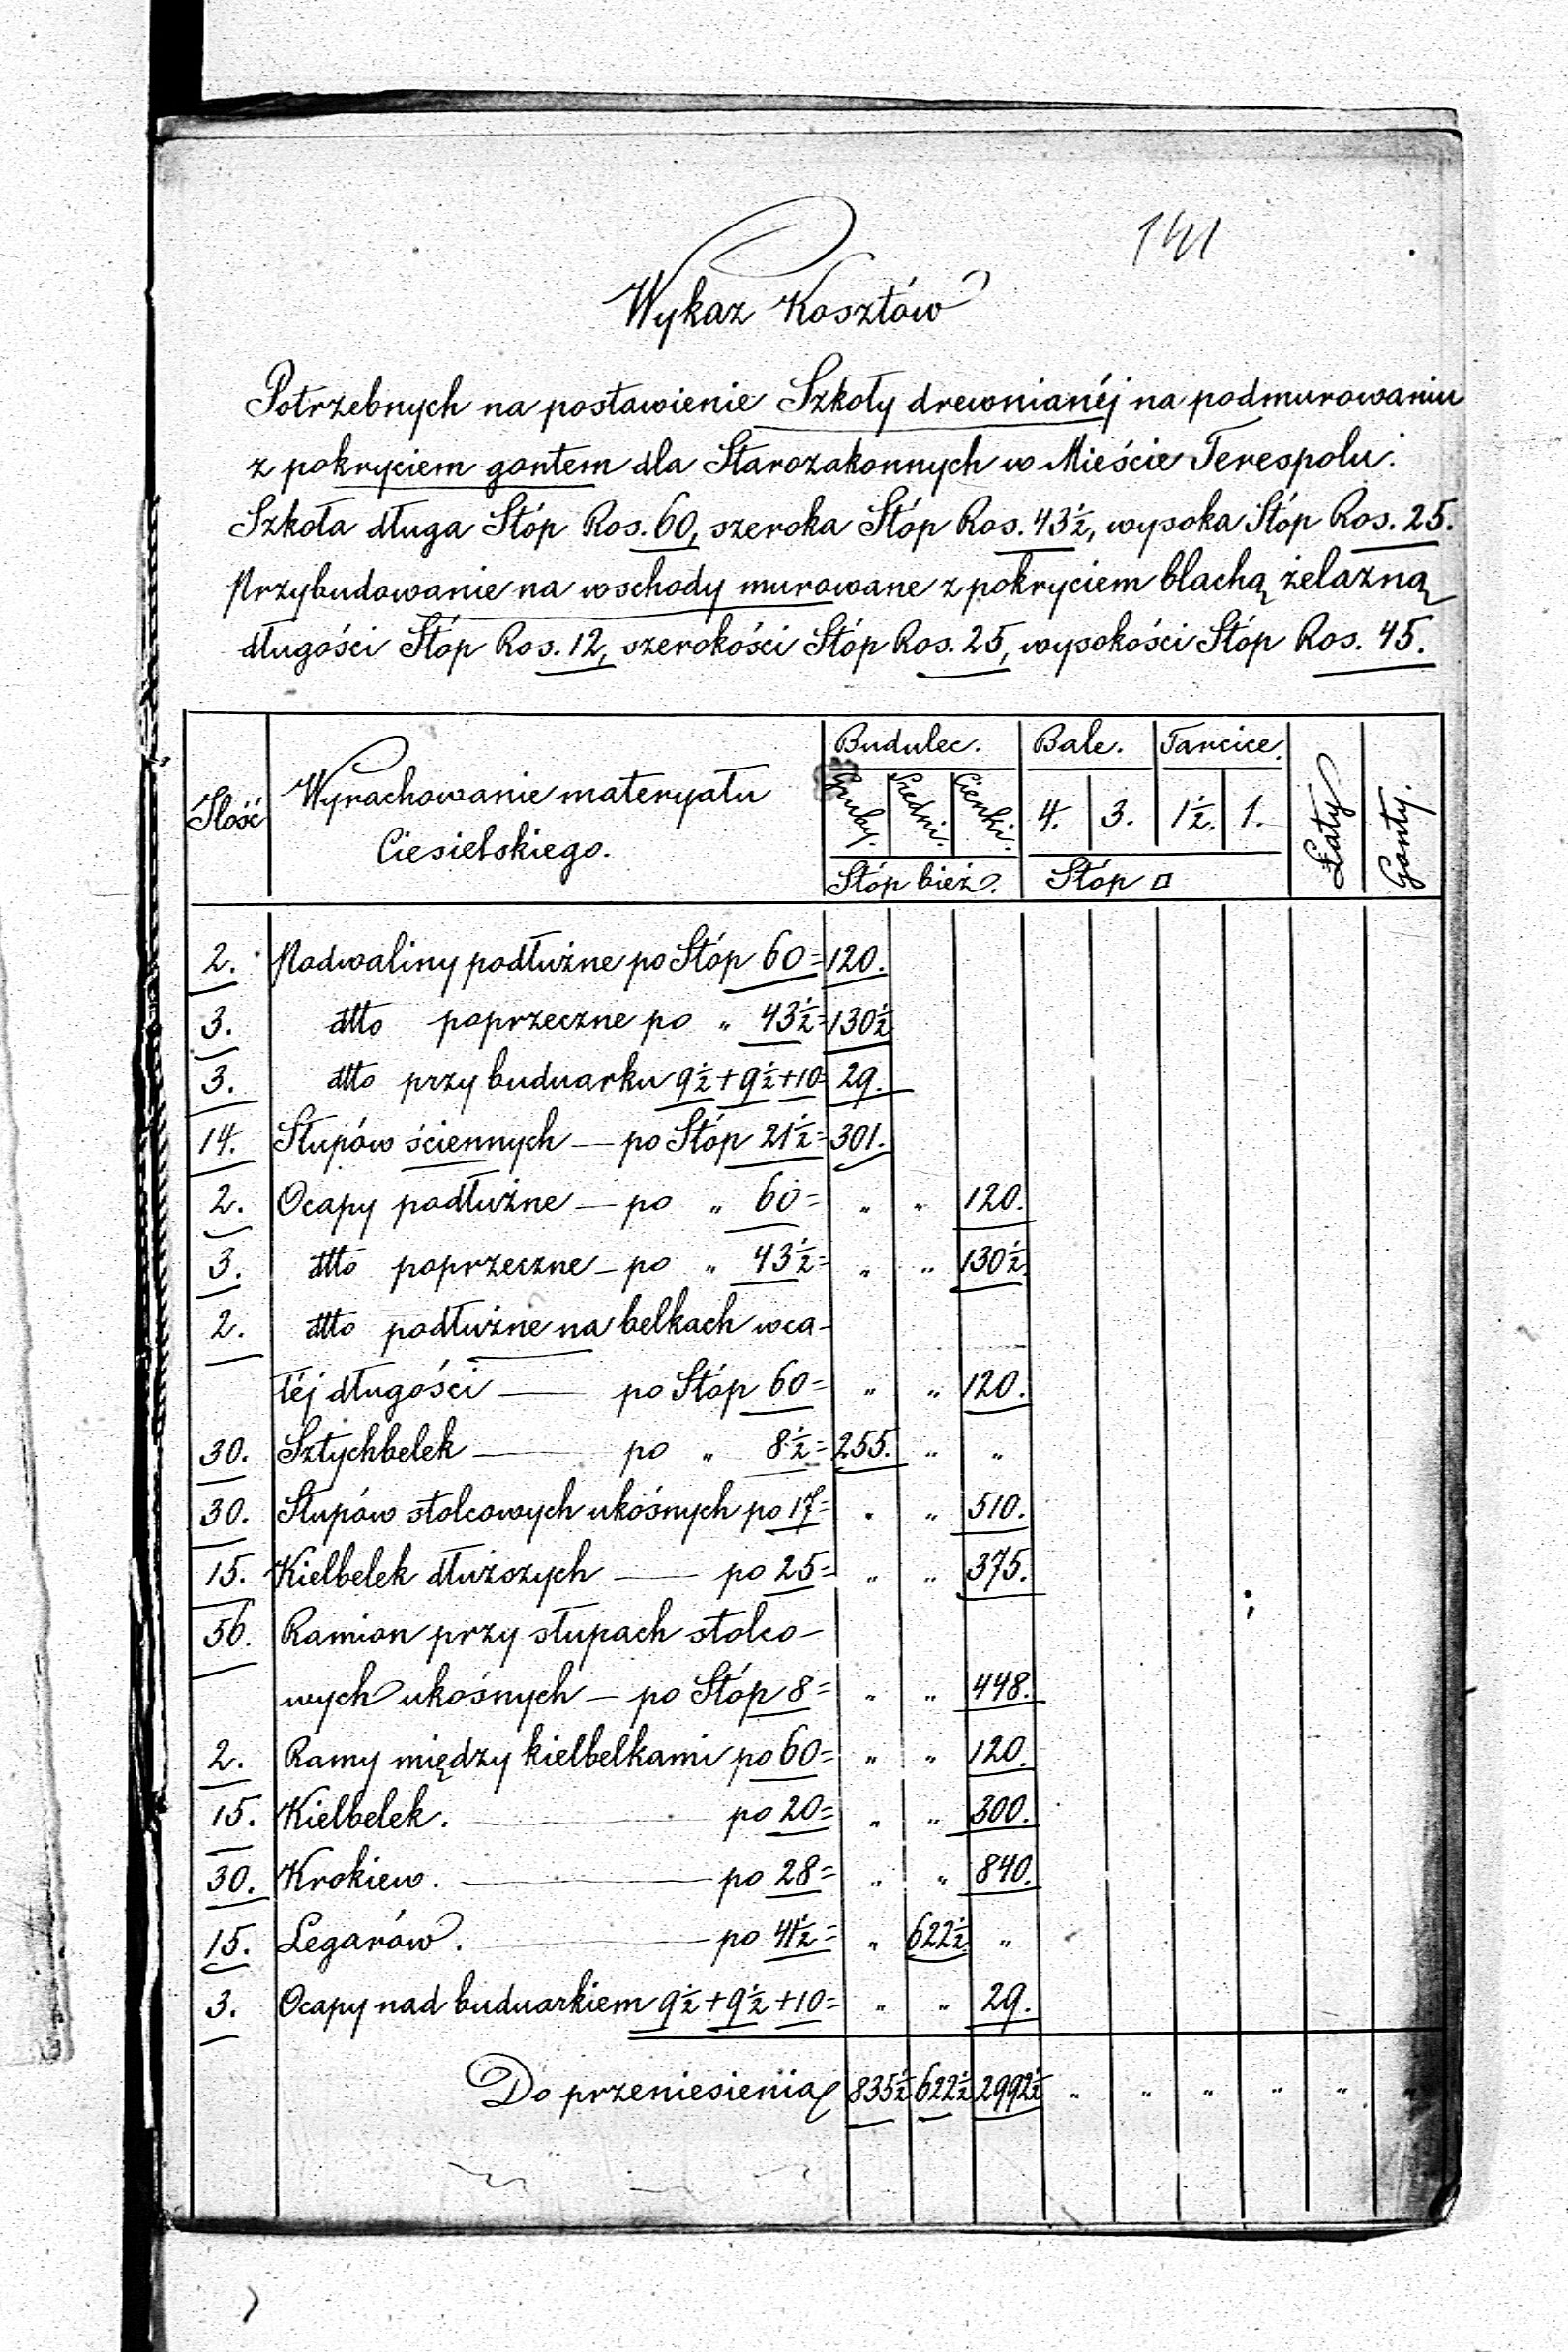 141
Wykaz Kosztów
Potrzebnych na postawienie Szkoły drewnianéj na podmurowaniu
z pokryciem gontem dla Starozakonnych w Mieście Terespolu.
Szkoła długa Stóp Ros. 60, szeroka Stóp Ros. 43½, wysoka Stóp Ros. 25.
Przybudowanie na wschody murowane z pokryciem blachą żelazną
długości Stóp Ros. 12, szerokości Stóp Ros. 25, wysokości Stóp Ros. 45.
Ilość Wyrachowanie materyału Ciesielskiego. Budulec. Bale. Tarcice. Łaty Gonty.
Gruby. Średni. Cienki. 4. 3. 1½. 1.
Stóp bież. Stóp □
2. Podwaliny podłużne po Stóp 60 = 120.
3. dtto poprzeczne po " 43½ = 130½
3. dtto przy buduarku 9½ + 9½ + 10 = 29.
14. Słupów ściennych — po Stóp 21½ = 301.
2. Ocapy podłużne — po " 60 = " " 120.
3. dtto poprzeczne — po " 43½ = " " 130½
2. dtto podłużne na belkach wca-
łéj długości — po Stóp 60 = " " 120.
30. Sztychbelek — po " 8½ = 255. " "
30. Słupów stolcowych ukośnych po 17 = " " 510.
15. Kielbelek dłuższych — po 25 = " " 375.
56. Ramion przy słupach stolco-
wych ukośnych — po Stóp 8 = " " 448.
2. Ramy między kielbelkami po 60 = " " 120.
15. Kielbelek. — po 20 = " " 300.
30. Krokiew. — po 28 = " " 840.
15. Legarów. — po 41½ = " 622½ "
3. Ocapy nad buduarkiem 9½ + 9½ + 10 = " " 29.
Do przeniesienia 835½ 622½ 2992½ " " " " " "